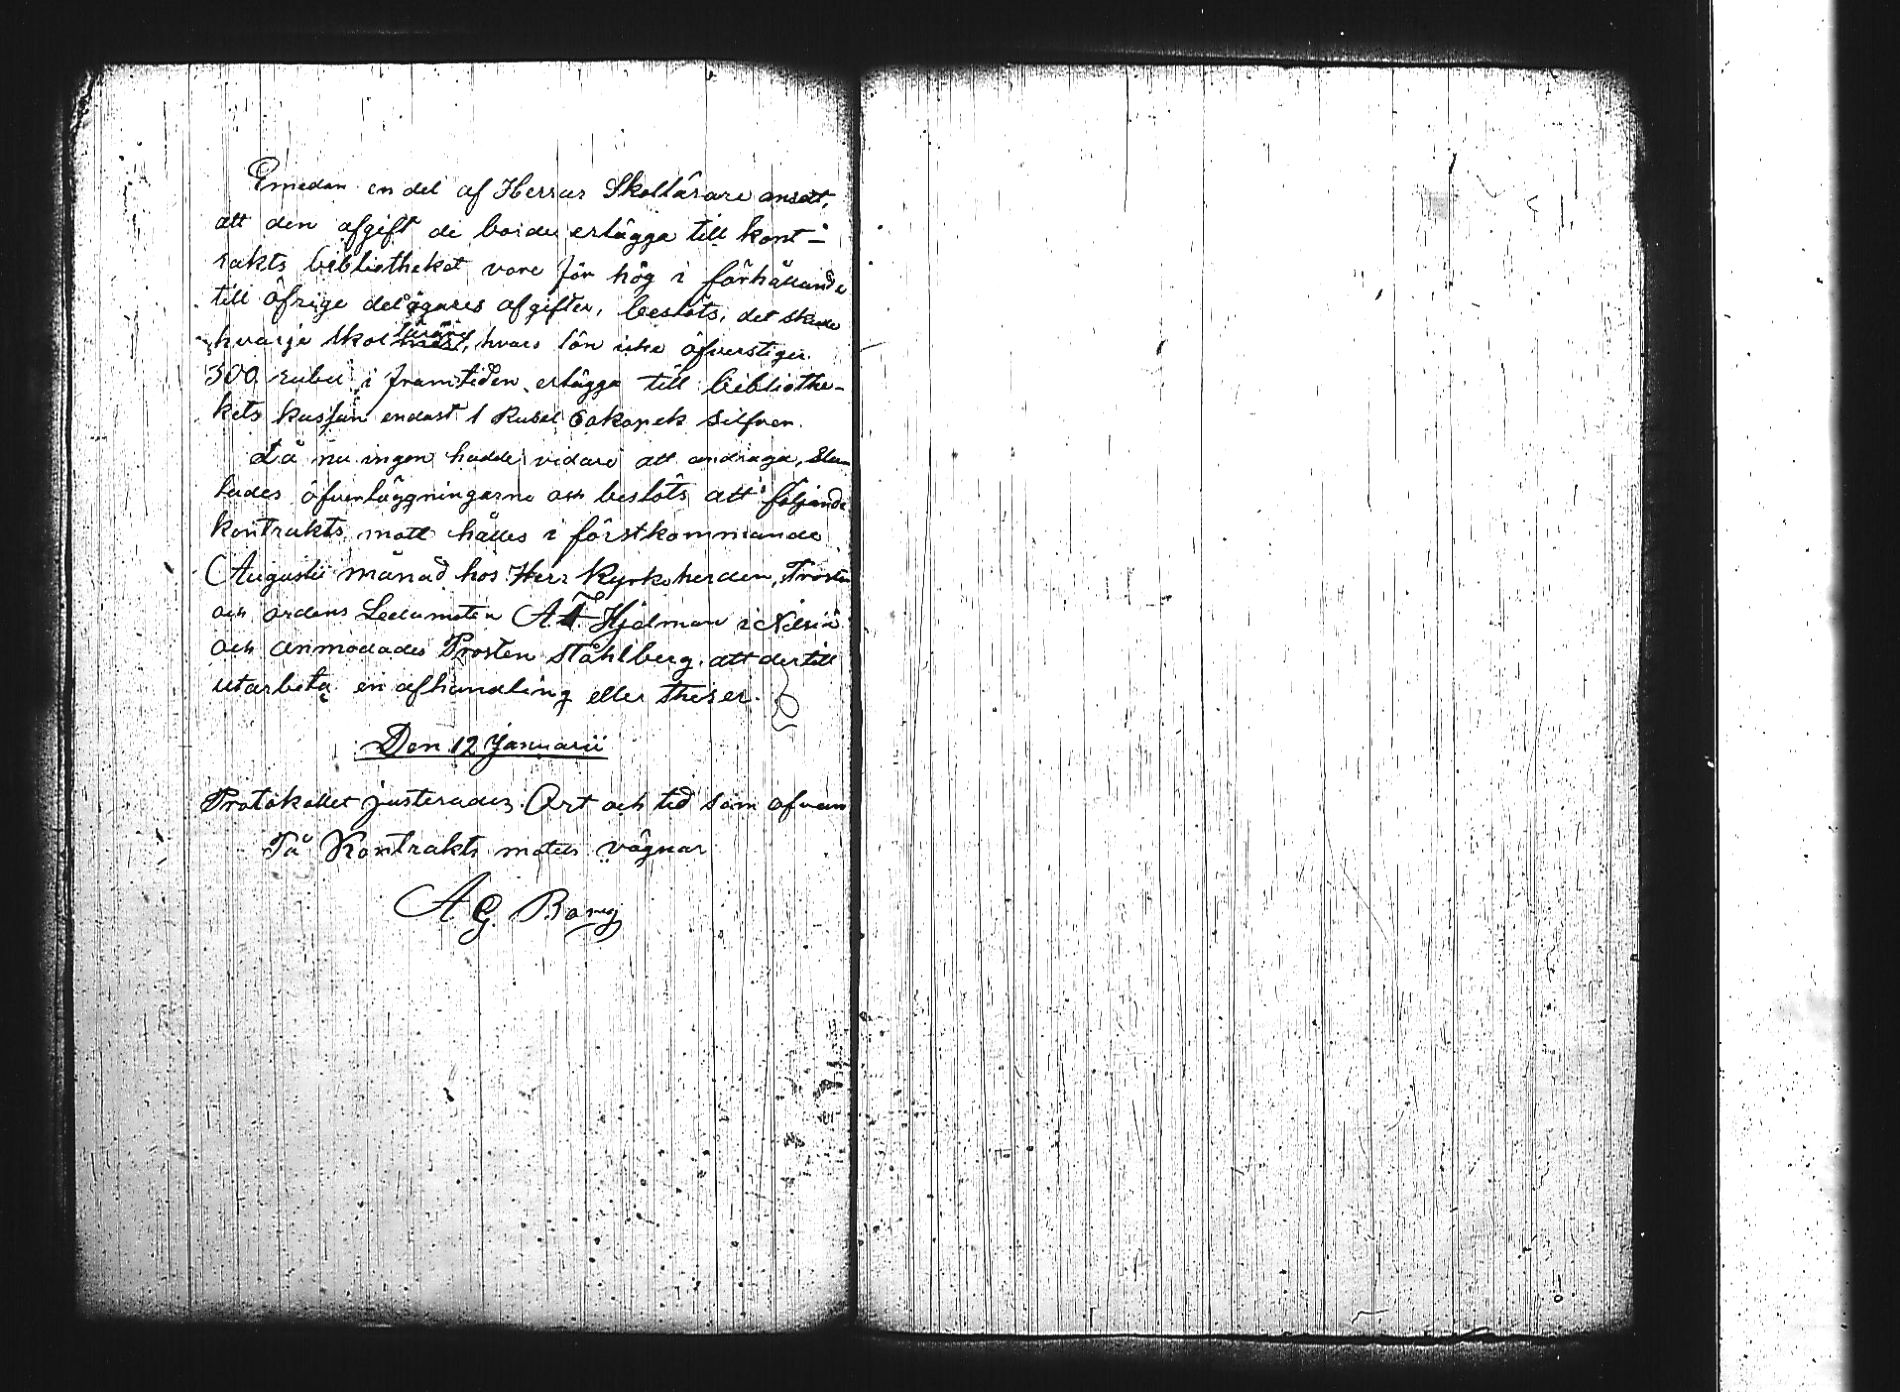 Emedan en del af Herrar Skollärare ansett,
att den afgift de borde erlägga till kont-
rakts bibliotheket vore för hög i förhållande
till öfrige delägares afgifter, beslöts, det skulle
hvarje skol lärare, hvars lön icke öfverstiger
300 rubel i framtiden erlägga till bibliothe-
kets kassan endast 1 Rubel 60 kopek silfver.
Då nu ingen hade vidare att andraga, slu-
tades öfverläggningarne och beslöts att följande
kontrakts mött hålles i förstkommande
Augusti månad hos Herr Kyrkoherden, Prosten
och ordens Ledamoten A. F. Hjelman i Nilsiä
och anmodades Prosten Ståhlberg att dertill
utarbeta en afhandling eller theser.
Den 12 Januarii
Protokollet justerades. Ort och tid som ofvan
På Kontrakts mötets vägnar
A G. Borg